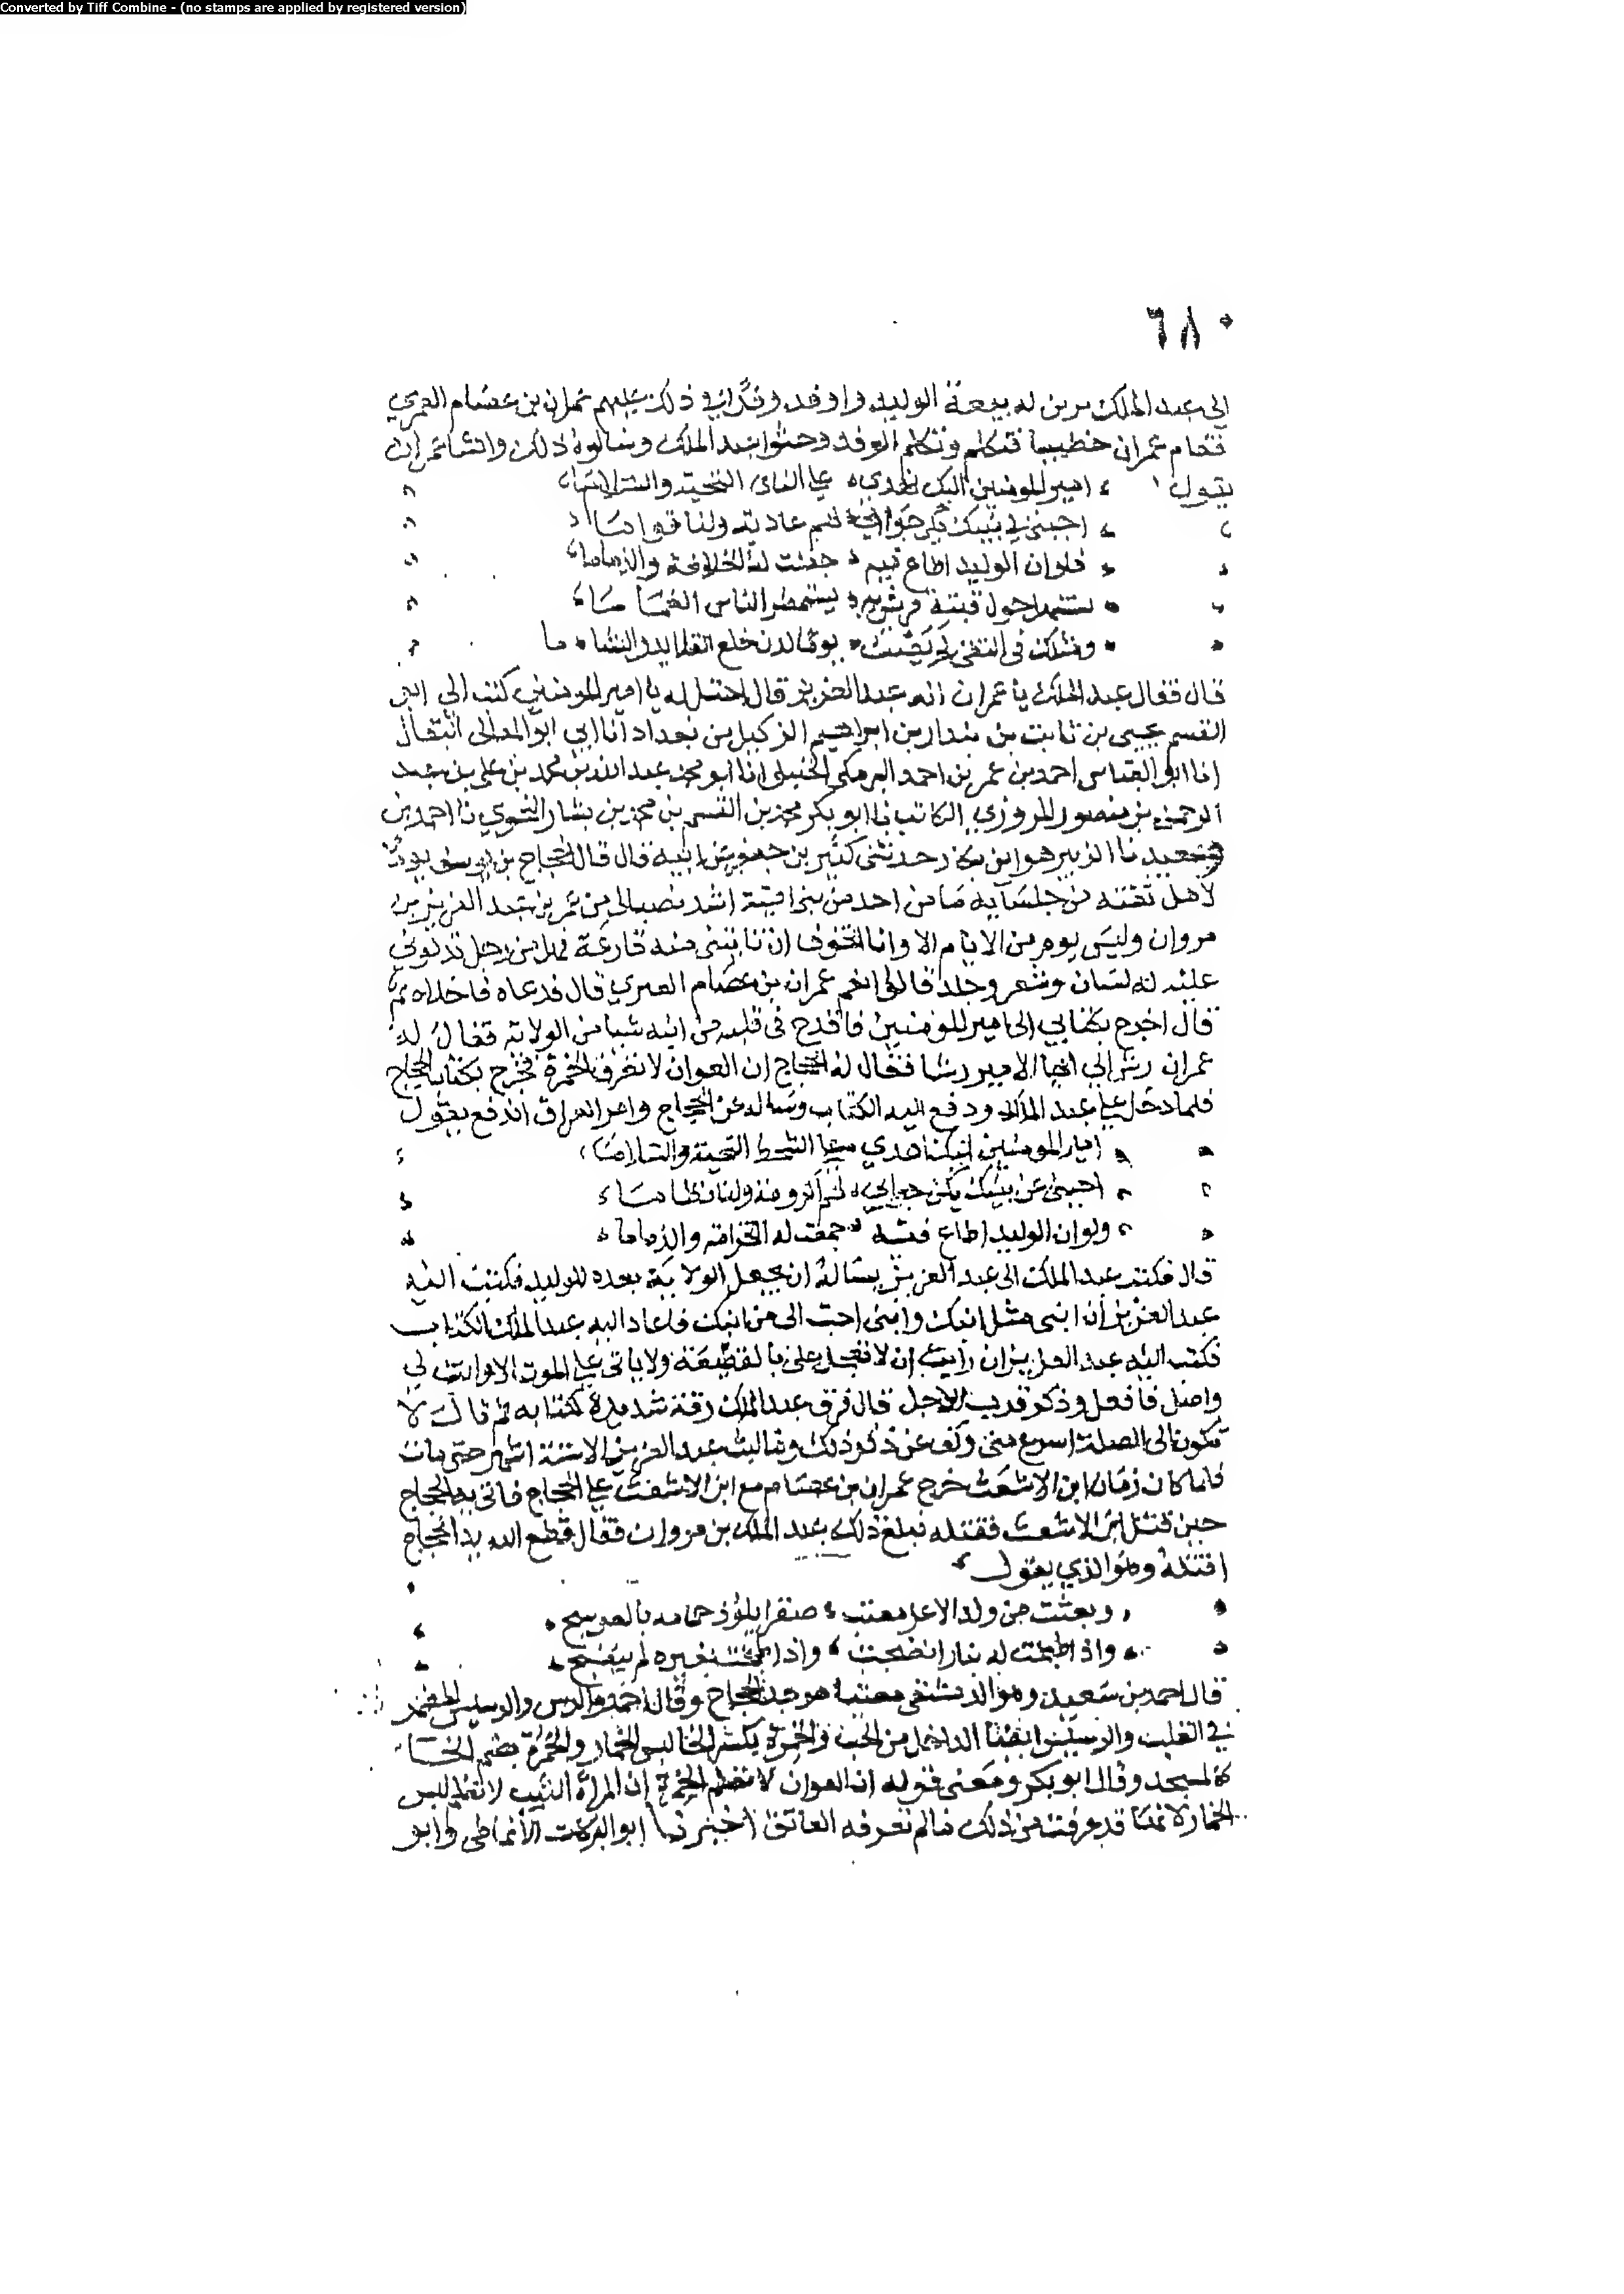 Converted by Tiff Combine - (no stamps are applied by registered version)
٦٨٠
الى عبد الملك يزين له بيعة الوليد واوفد وفدا في ذلك عليهم عمران بن عصام العنزي
فقام عمران خطيبا فتكلم وتكلم الوفد وحثوا عبد الملك وسالوه ذلك وانشا عمران
يقول
امير المومنين اليك نهدي على الناي التحية والسلاما
اجبني في بنيك يكن جوابي لهم عادية ولنا قواما
فلو ان الوليد اطاع فيه جعلت له الخلافة والذماما
شبيهك حول قبته قريش به يستمطر الناس الغماما
ومثلك في التقى لم يصب يوما لدن خلع القلايد التماما
قال فقال عبد الملك يا عمران انه عبد العزيز قال احتل له يا امير المومنين كتب الي ابو
القسم يحيى بن ثابت بن بندار بن ابراهيم الوكيل من بغداد انا ابي ابو المعالي البقال
انا ابو العباس احمد بن عمر بن احمد البرمكي الحنبلي انا ابو محمد عبد الله بن محمد بن علي بن عبد
الرحمن بن منصور المروزي الكاتب نا ابو بكر محمد بن القسم بن محمد بن بشار النحوي نا احمد بن
سعيد نا الزبير هو ابن بكار حدثني كثير بن جعفر عن ابيه قال قال الحجاج بن يوسف يوما
لاهل ثقته من جلسآيه ما من احد من بني امية اشد نصبا لي من عمر بن عبد العزيز بن
مروان وليس يوم من الايام الا وانا اتخوف ان تاتيني منه قارعة فهل من رجل تدلوني
عليه له لسان وشعر وجلد قالوا نعم عمران بن عصام العنزي قال فدعاه فاخلاه ثم
قال اخرج بكتابي الى امير المومنين فاقدح في قلبه من ابنه شيا من الولاية فقال له
عمران دس الي ايها الامير دسا فقال له الحجاج ان العوان لا تعرف الخمرة فخرج بكتاب الحجاج
فلما دخل على عبد الملك ودفع اليه الكتاب وساله عن الحجاج وامر العراق اندفع يقول
امير المومنين اليك اهدي على الشحط التحية والسلاما
اجبني عن بنيك يكن جوابي لهم اكرومة ولنا نظاما
ولو ان الوليد اطاع فيه جمعت له الخزامة والذماما
قال فكتب عبد الملك الى عبد العزيز يساله ان يجعل الولاية بعده للوليد فكتب اليه
عبد العزيز ان ابني مثل ابنك وابني احب الي من ابنك فاعاد اليه عبد الملك الكتاب
فكتب اليه عبد العزيز ان رايت ان لا تعجل علي بالقطيعة ولا ياتي علي الموت الا وانت لي
واصل فافعل وذكر قرب الاجل قال فرق عبد الملك رقة شديدة لكتابه ثم قال لا
تكون الى الصلة اسرع مني وكف عن ذكر ذلك وما لبث عبد العزيز الا ستة اشهر حتى مات
فلما كان زمان ابن الاشعث خرج عمران بن عصام مع ابن الاشعث على الحجاج فاتي به الحجاج
حين قتل ابن الاشعث فقتله فبلغ ذلك عبد الملك بن مروان فقال قطع الله يد الحجاج
اقتله وهو الذي يقول
وبعثت من ولد الاغر معتب صقرا يلوذ حمامه بالعوسج
واذا طبخت له بنار انضجت واذا طبخت بغيره لم ينضج
قال احمد بن سعيد وهو الدمشقي معتب هو جد الحجاج وقال احمد والرس والرسيس المضمر
في القلب والرسيس ايضا الداخل من الحب والخمرة بكسر الخا لبس الخمار والخمرة بضم الخا
كالمسجد وقال ابو بكر ومعنى قوله ان العوان لا تعلم الخمرة ان المراة الثيب لا تعلم لبس
الخمار لانها قد عرفت من ذلك ما لم تعرفه العاتق اخبرنا ابو البركات الانماطي وابو